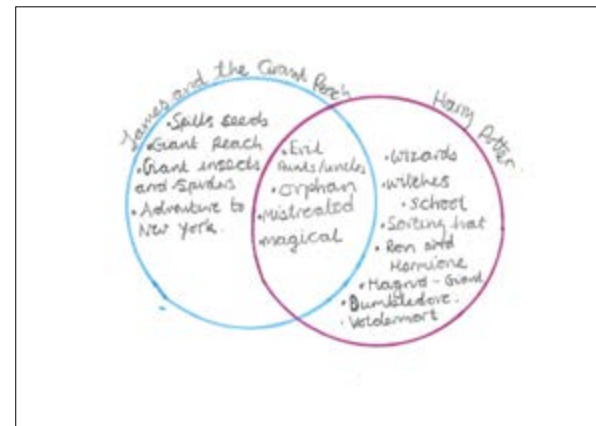 James and the Giant Peach
• Spills seeds
• Giant Peach
• Giant insects
and Spiders
• Adventure to
New York.
• Evil
Aunts/uncles
• orphan
• mistreated
• magical
Harry Potter
• Wizards
• witches
• school
• Sorting hat
• Ron and
Hermione
• Hagrid - Giant
• Dumbledore.
• Voldemort